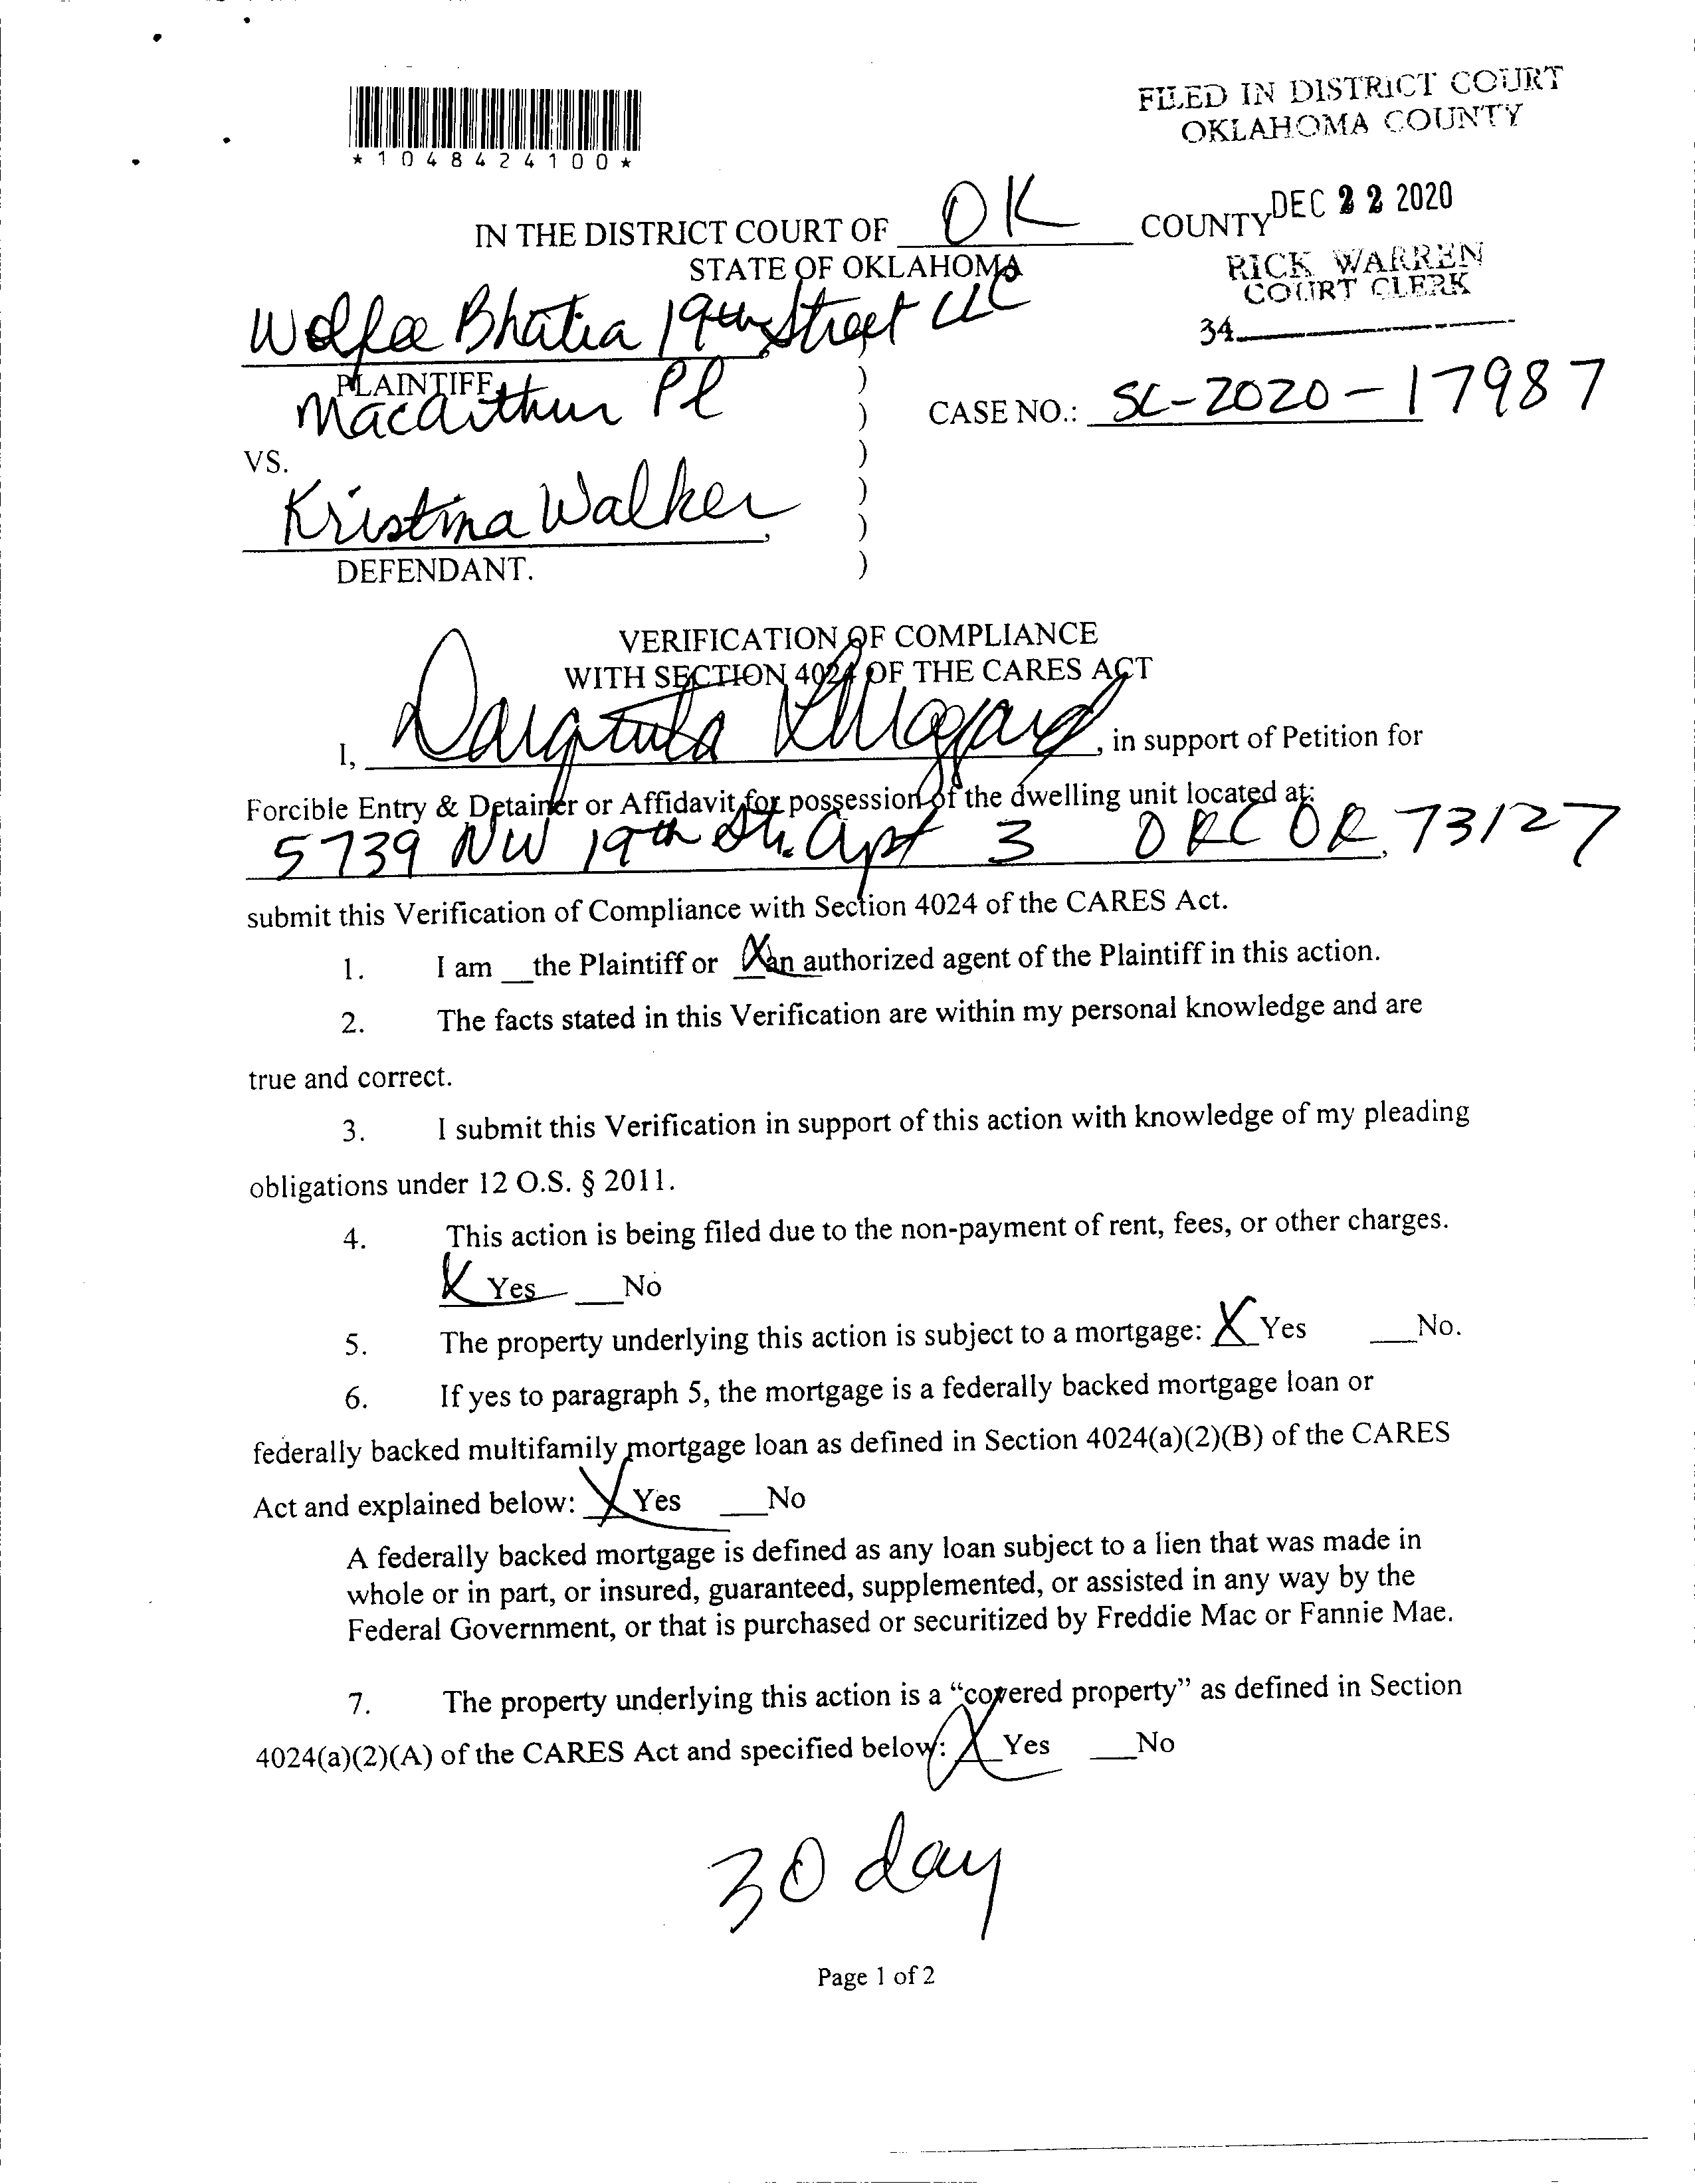 *1048424100*
FILED IN DISTRICT COURT
OKLAHOMA COUNTY
DEC 22 2020
RICK WARREN
COURT CLERK
34
IN THE DISTRICT COURT OF OK COUNTY
STATE OF OKLAHOMA
Wolfee Bhatia 19th Street LLC
PLAINTIFF,
Macarthur Pl
CASE NO.: SC-2020-17987
VS.
Kristina Walker,
DEFENDANT.
VERIFICATION OF COMPLIANCE
WITH SECTION 4024 OF THE CARES ACT
I, , in support of Petition for
Forcible Entry & Detainer or Affidavit for possession of the dwelling unit located at:
5739 NW 19th St. Apt 3 OKC OK, 73127
submit this Verification of Compliance with Section 4024 of the CARES Act.
1. I am __the Plaintiff or X an authorized agent of the Plaintiff in this action.
2. The facts stated in this Verification are within my personal knowledge and are
true and correct.
3. I submit this Verification in support of this action with knowledge of my pleading
obligations under 12 O.S. § 2011.
4. This action is being filed due to the non-payment of rent, fees, or other charges.
X Yes __No
5. The property underlying this action is subject to a mortgage: X Yes __No.
6. If yes to paragraph 5, the mortgage is a federally backed mortgage loan or
federally backed multifamily mortgage loan as defined in Section 4024(a)(2)(B) of the CARES
Act and explained below: X Yes __No
A federally backed mortgage is defined as any loan subject to a lien that was made in
whole or in part, or insured, guaranteed, supplemented, or assisted in any way by the
Federal Government, or that is purchased or securitized by Freddie Mac or Fannie Mae.
7. The property underlying this action is a “covered property” as defined in Section
4024(a)(2)(A) of the CARES Act and specified below: X Yes __No
30 day
Page 1 of 2